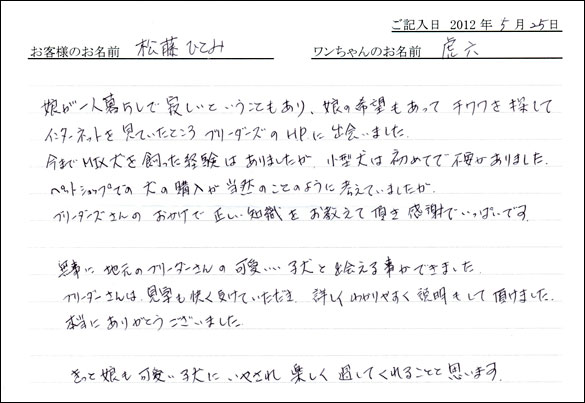 ご記入日 2012 年 5 月 25 日
お客様のお名前 松藤 ひとみ ワンちゃんのお名前 虎六
娘が一人暮らしで寂しいということもあり、娘の希望もあって チワワを探して
インターネットを見ていたところ ブリーダーズのHPに出会いました.
今までMIX犬を飼った経験はありましたが、小型犬は初めてで不安がありました.
ペットショップでの犬の購入が当然のことのように考えていましたが.
ブリーダーズさんの おかげで正しい知識をお教えて頂き感謝でいっぱいです.
無事に地元のブリーダーさんの可愛いい子犬と出会える事ができました
ブリーダーさんは、見学も快く受けていただき 詳しくわかりやすく説明もして頂けました.
本当にありがとうございました.
きっと娘も可愛い子犬に いやされ 楽しく過してくれることと思います.